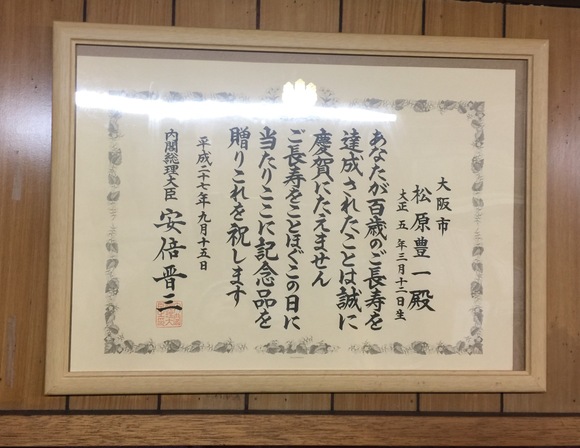 大阪市
松原豊一殿
大正五年三月十二日生
あなたが百歳のご長寿を
達成されたことは誠に
慶賀にたえません
ご長寿をことほぐこの日に
当たりここに記念品を
贈りこれを祝します
平成二十七年九月十五日
内閣総理大臣 安倍晋三